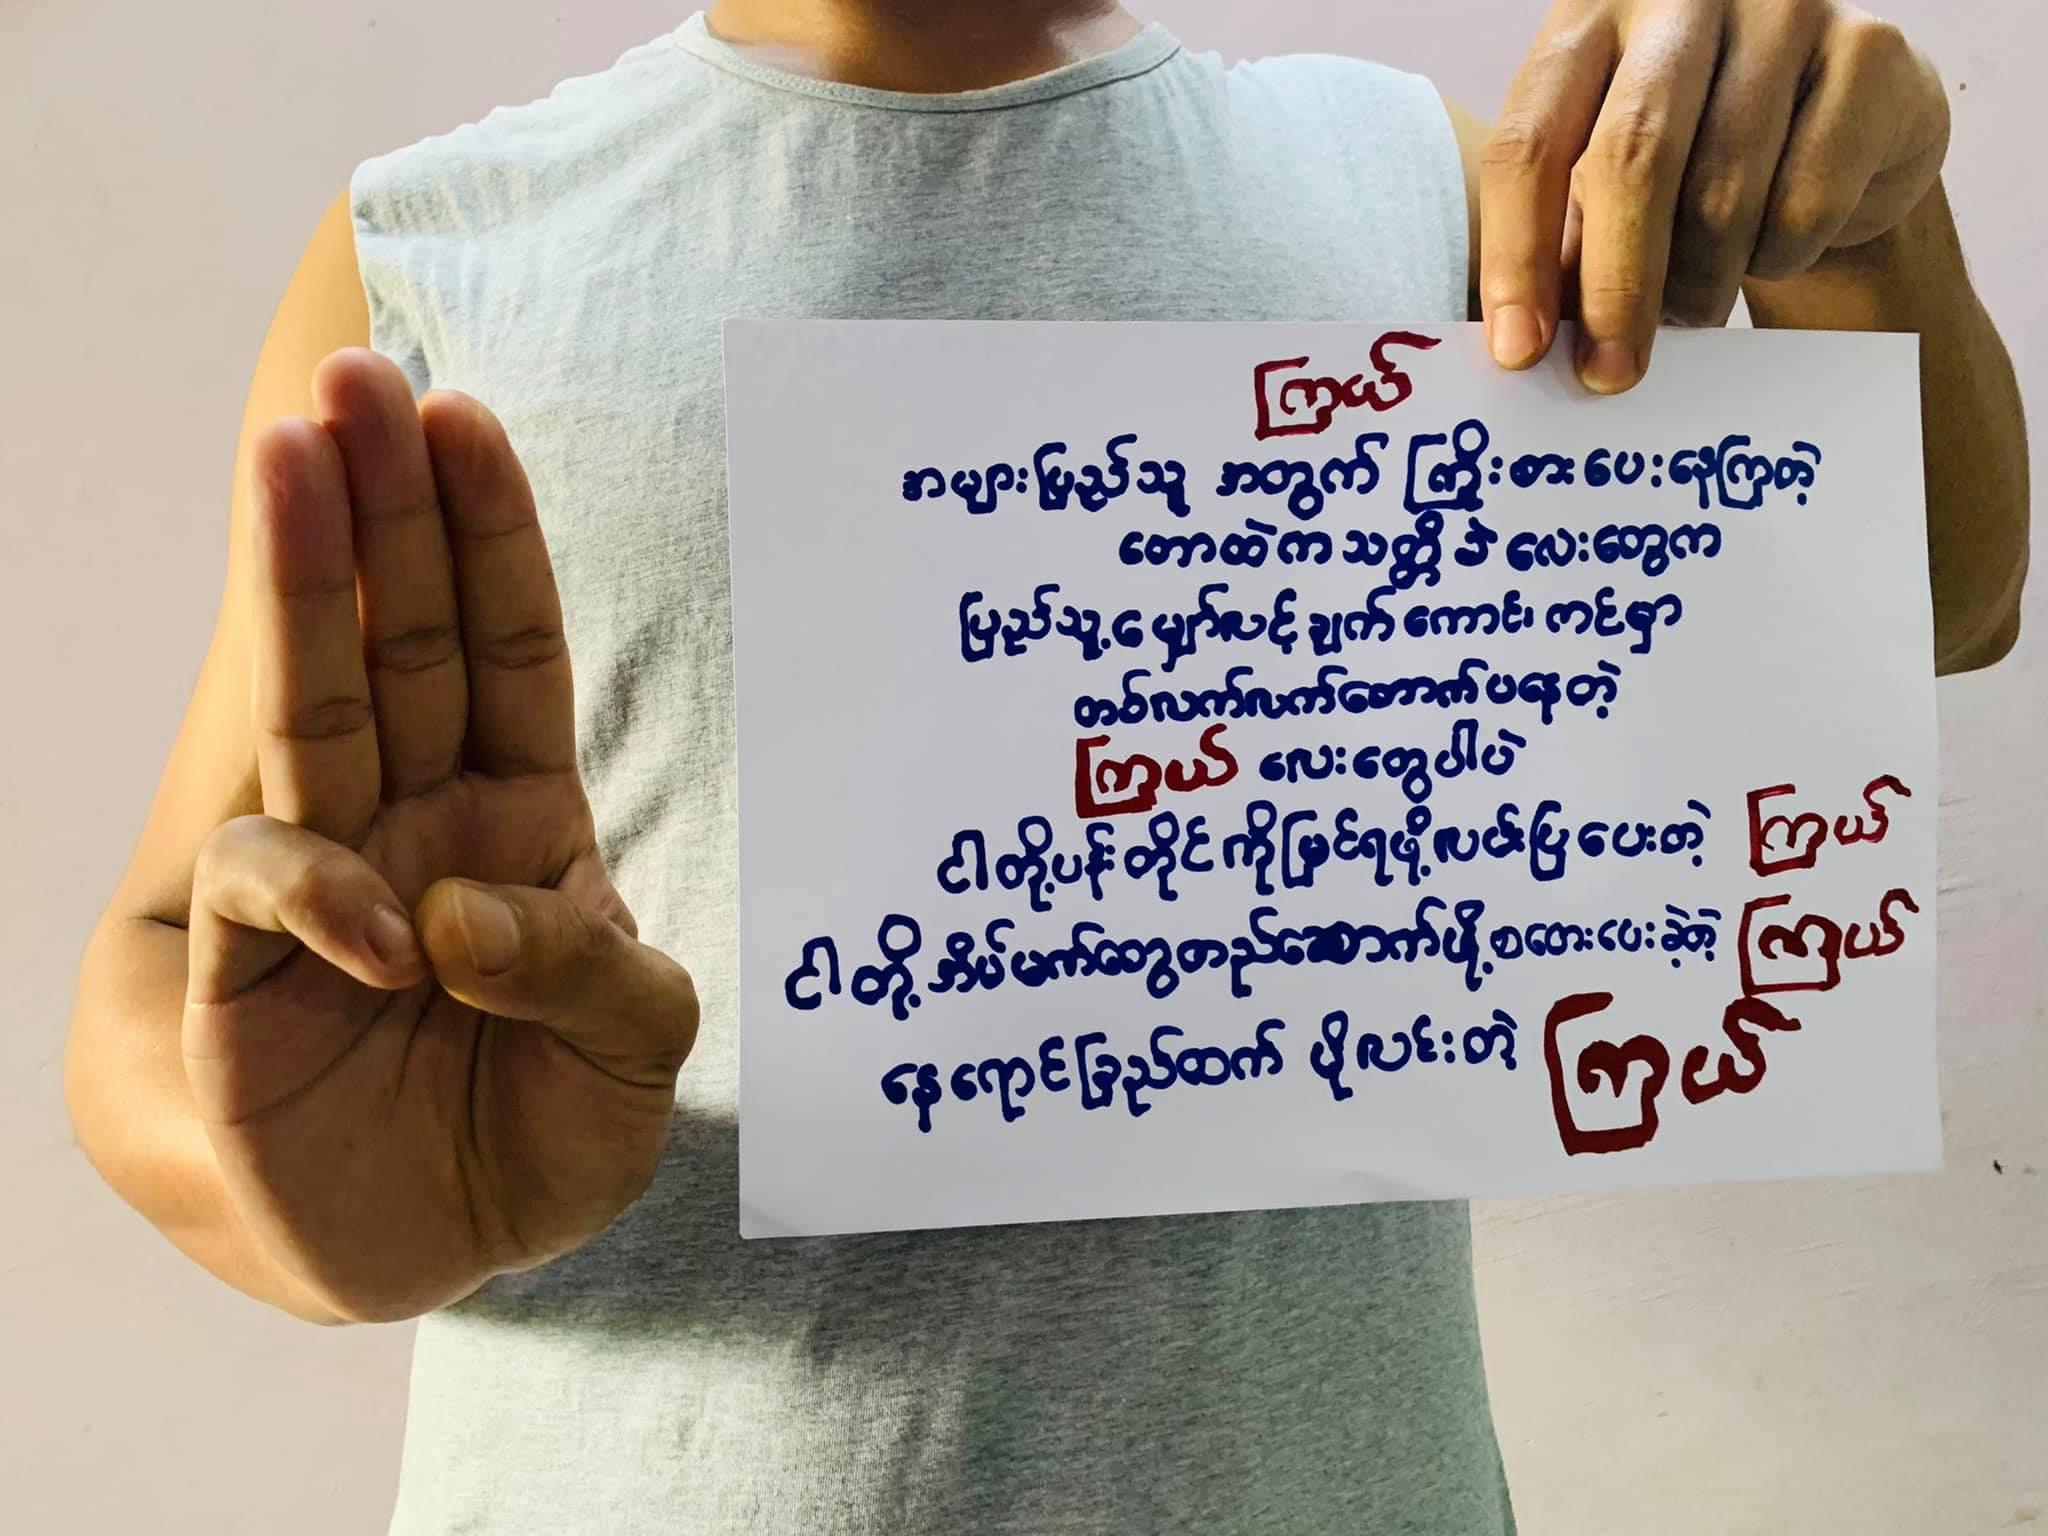 ကြယ်
အများပြည်သူ အတွက် ကြိုးစားပေးနေကြတဲ့
တောထဲက သတ္တိခဲ လေးတွေက
ပြည်သူ့ မျှော်လင့်ချက် ကောင်းကင်မှာ
တစ်လက်လက်တောက်ပနေတဲ့
ကြယ် လေးတွေပါပဲ
ငါတို့ပန်းတိုင်ကိုမြင်ရဖို့လမ်းပြပေးတဲ့ ကြယ်
ငါတို့အိပ်မက်တွေတည်ဆောက်ဖို့စတေးပေးခဲ့တဲ့ ကြယ်
နေရောင်ခြည်ထက် ပိုလင်းတဲ့ ကြယ်